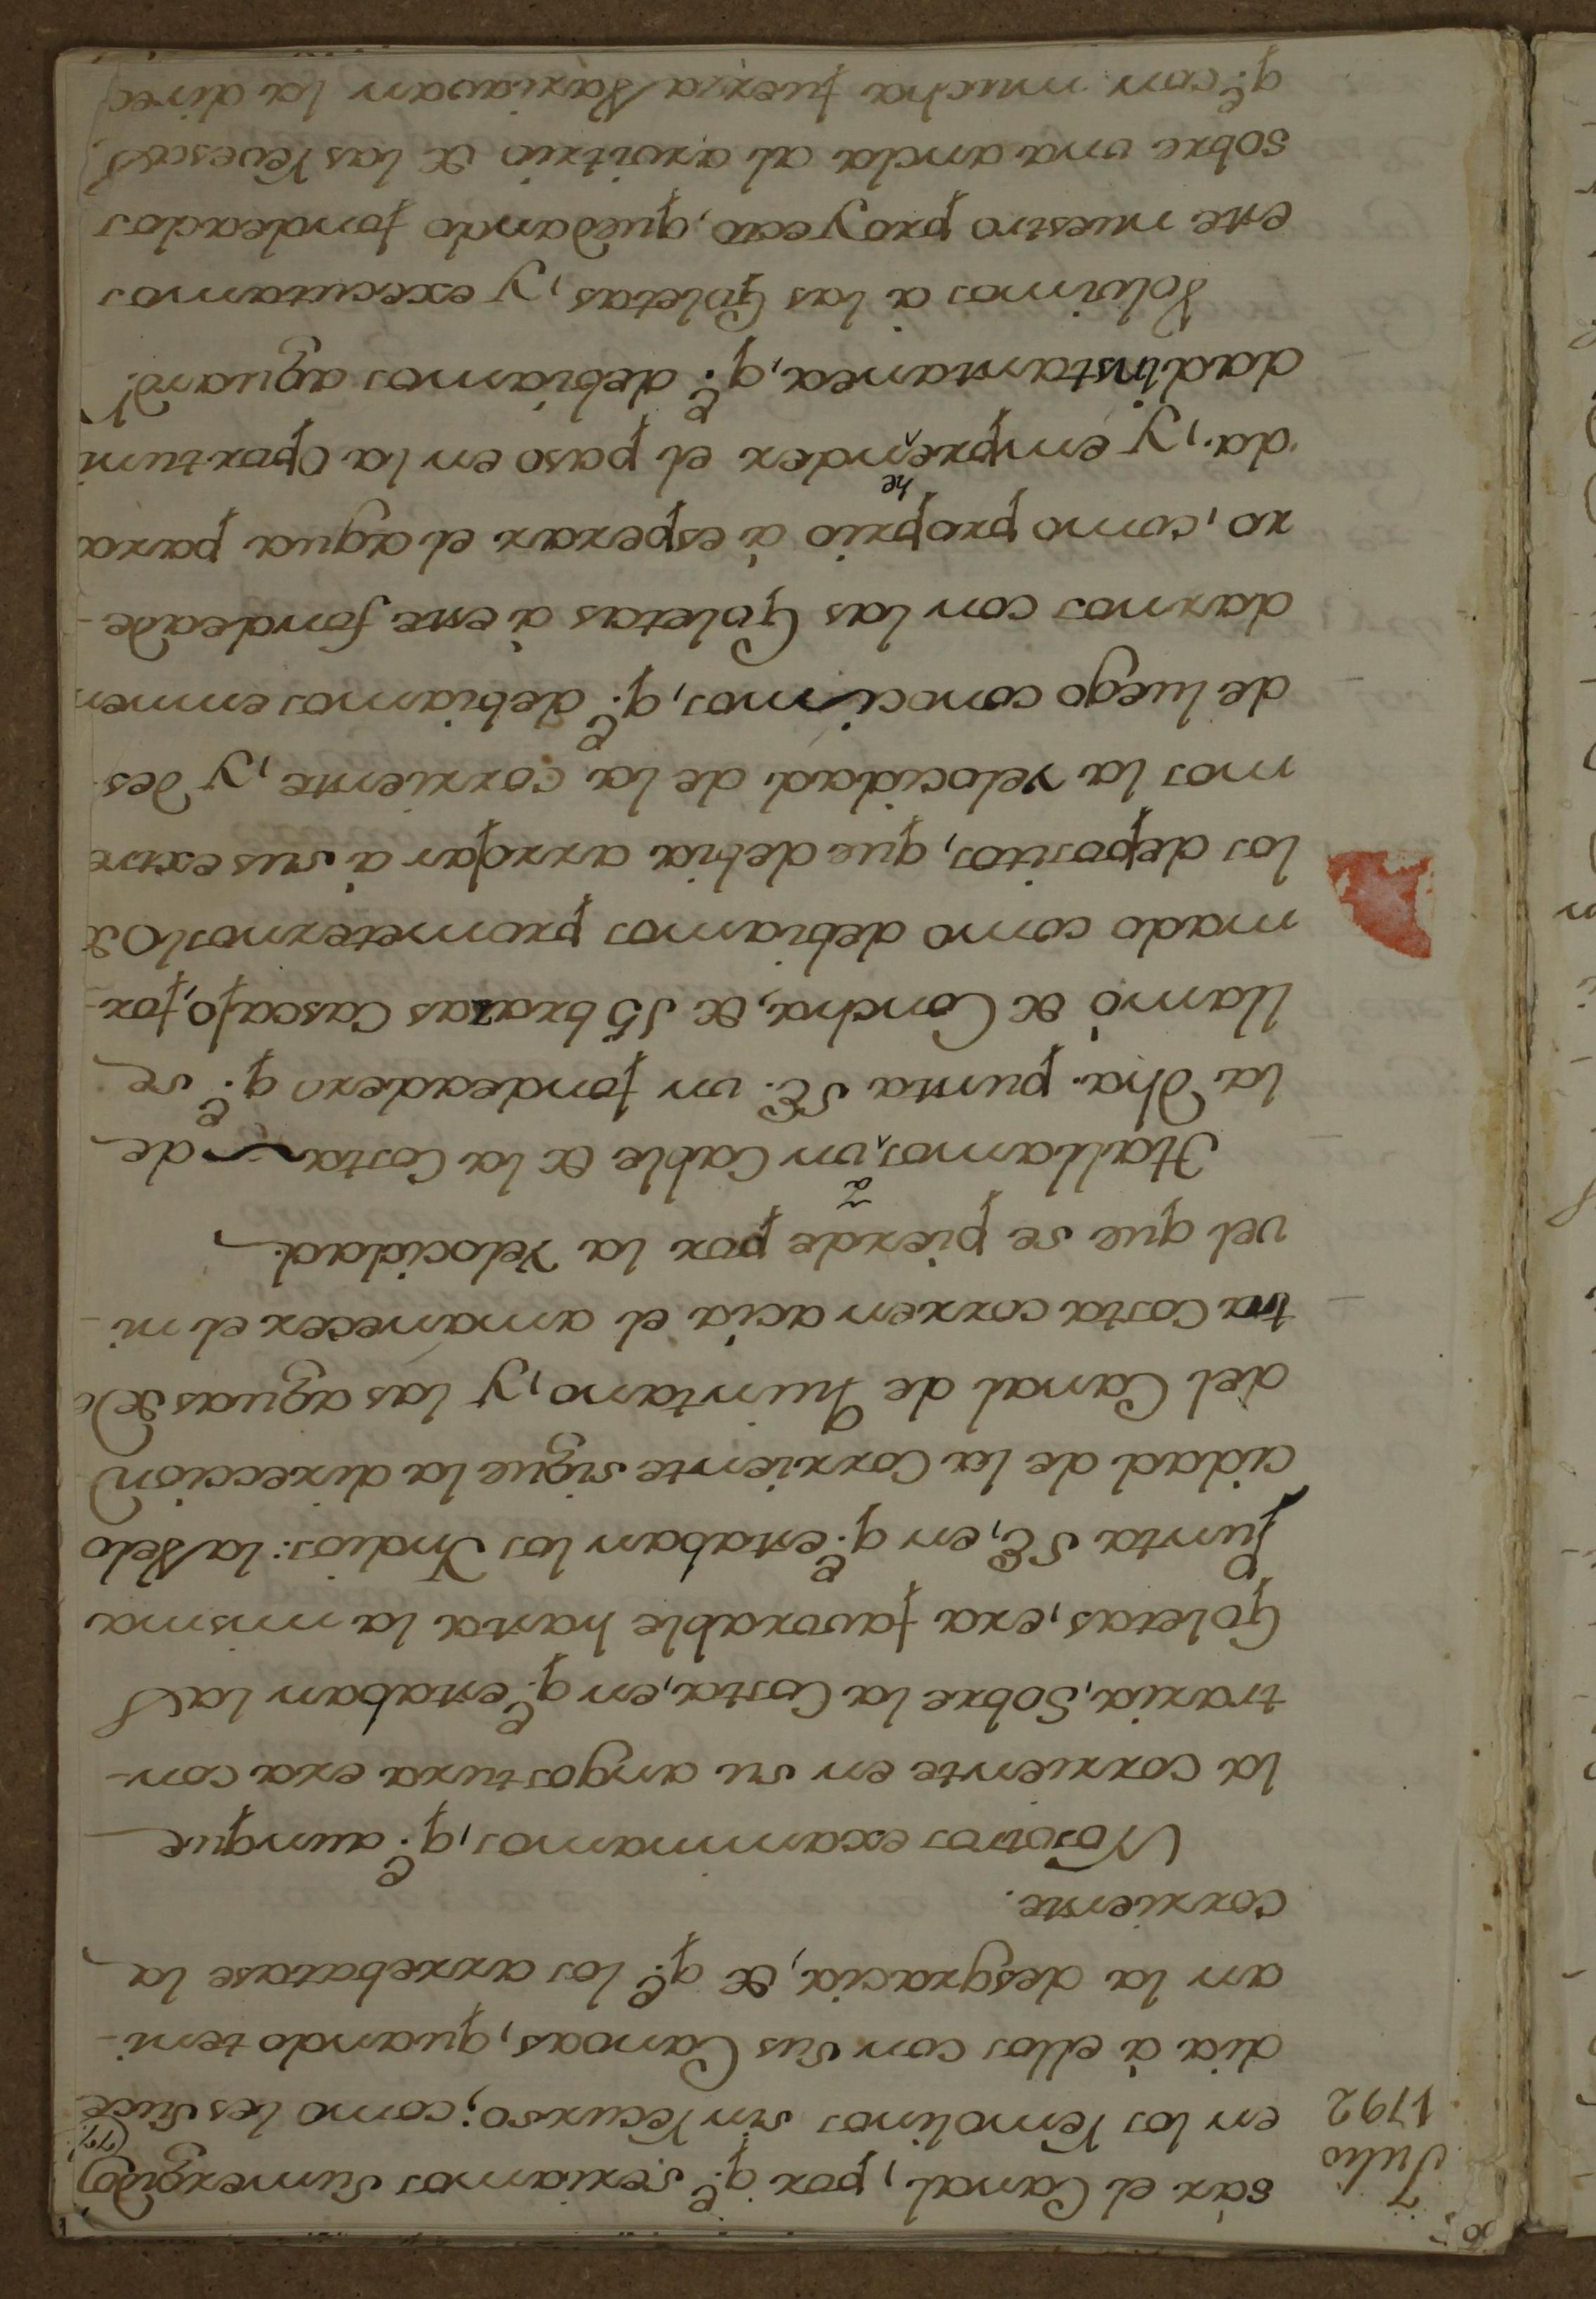 Julio
1792
sár el Canal, por q.e seriamos Sumergidos
en los Remolinos sin Recurso; como les Suce
(77)
dia á ellos con Sus Canoas, quando teni-
an la desgracia, de q.e los arrebatase la
corriente.
Nosotros examinamos, q.e aunque
la corriente en su angostura era con-
traria, Sobre la Costa, en q.e estaban las
Goletas, era favorable hasta la misma
Punta SE, en q.e estaban los Indios: la Velo
cidad de la Corriente sigue la dirección
del Canal de Quintano, y las aguas de
tra Costa corren acia el amanecer el ni-
vel que se pierde por la Velocidad.
Hallamos, a un Cable de la Costa de
la dha. punta SE. un fondeadero q.e se
llamó de Concha, de 15 brazas Cascajo, for-
mado como debiamos prometernoslo de
los depositos, que debia arrojar á sus extre
mos la velocidad de la corriente, y des-
de luego conocimos, q.e debiamos enmen
darnos con las Goletas á este fondeade-
ro, como proprio á esperar el agua para
da, y emprehender el paso en la Oportuni
dad instantanea, q.e debiamos aguard.r
Volvimos a las Goletas, y executamos
este nuestro proyecto, quedando fondeados
sobre una ancla al arvitrio de las Revesas
q.e con mucha fuerza Variavan la direc